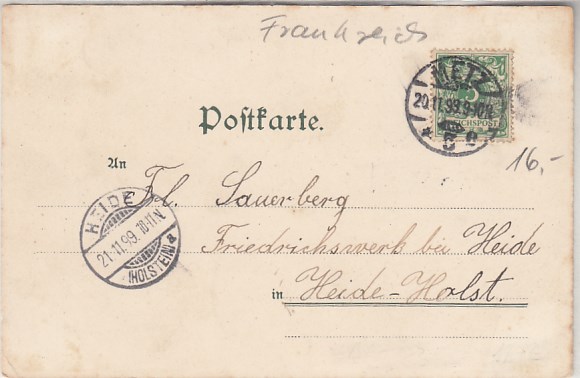 Frankreich
METZ
20.11.99.9-10V.
5
REICHSPOST
* 3 e
16,-
Postkarte.
An
Frl. Sauerberg
HEIDE
21.11.99.10-11N.
(HOLSTEIN)
Friedrichswerk bei Heide
in Heide-Holst.